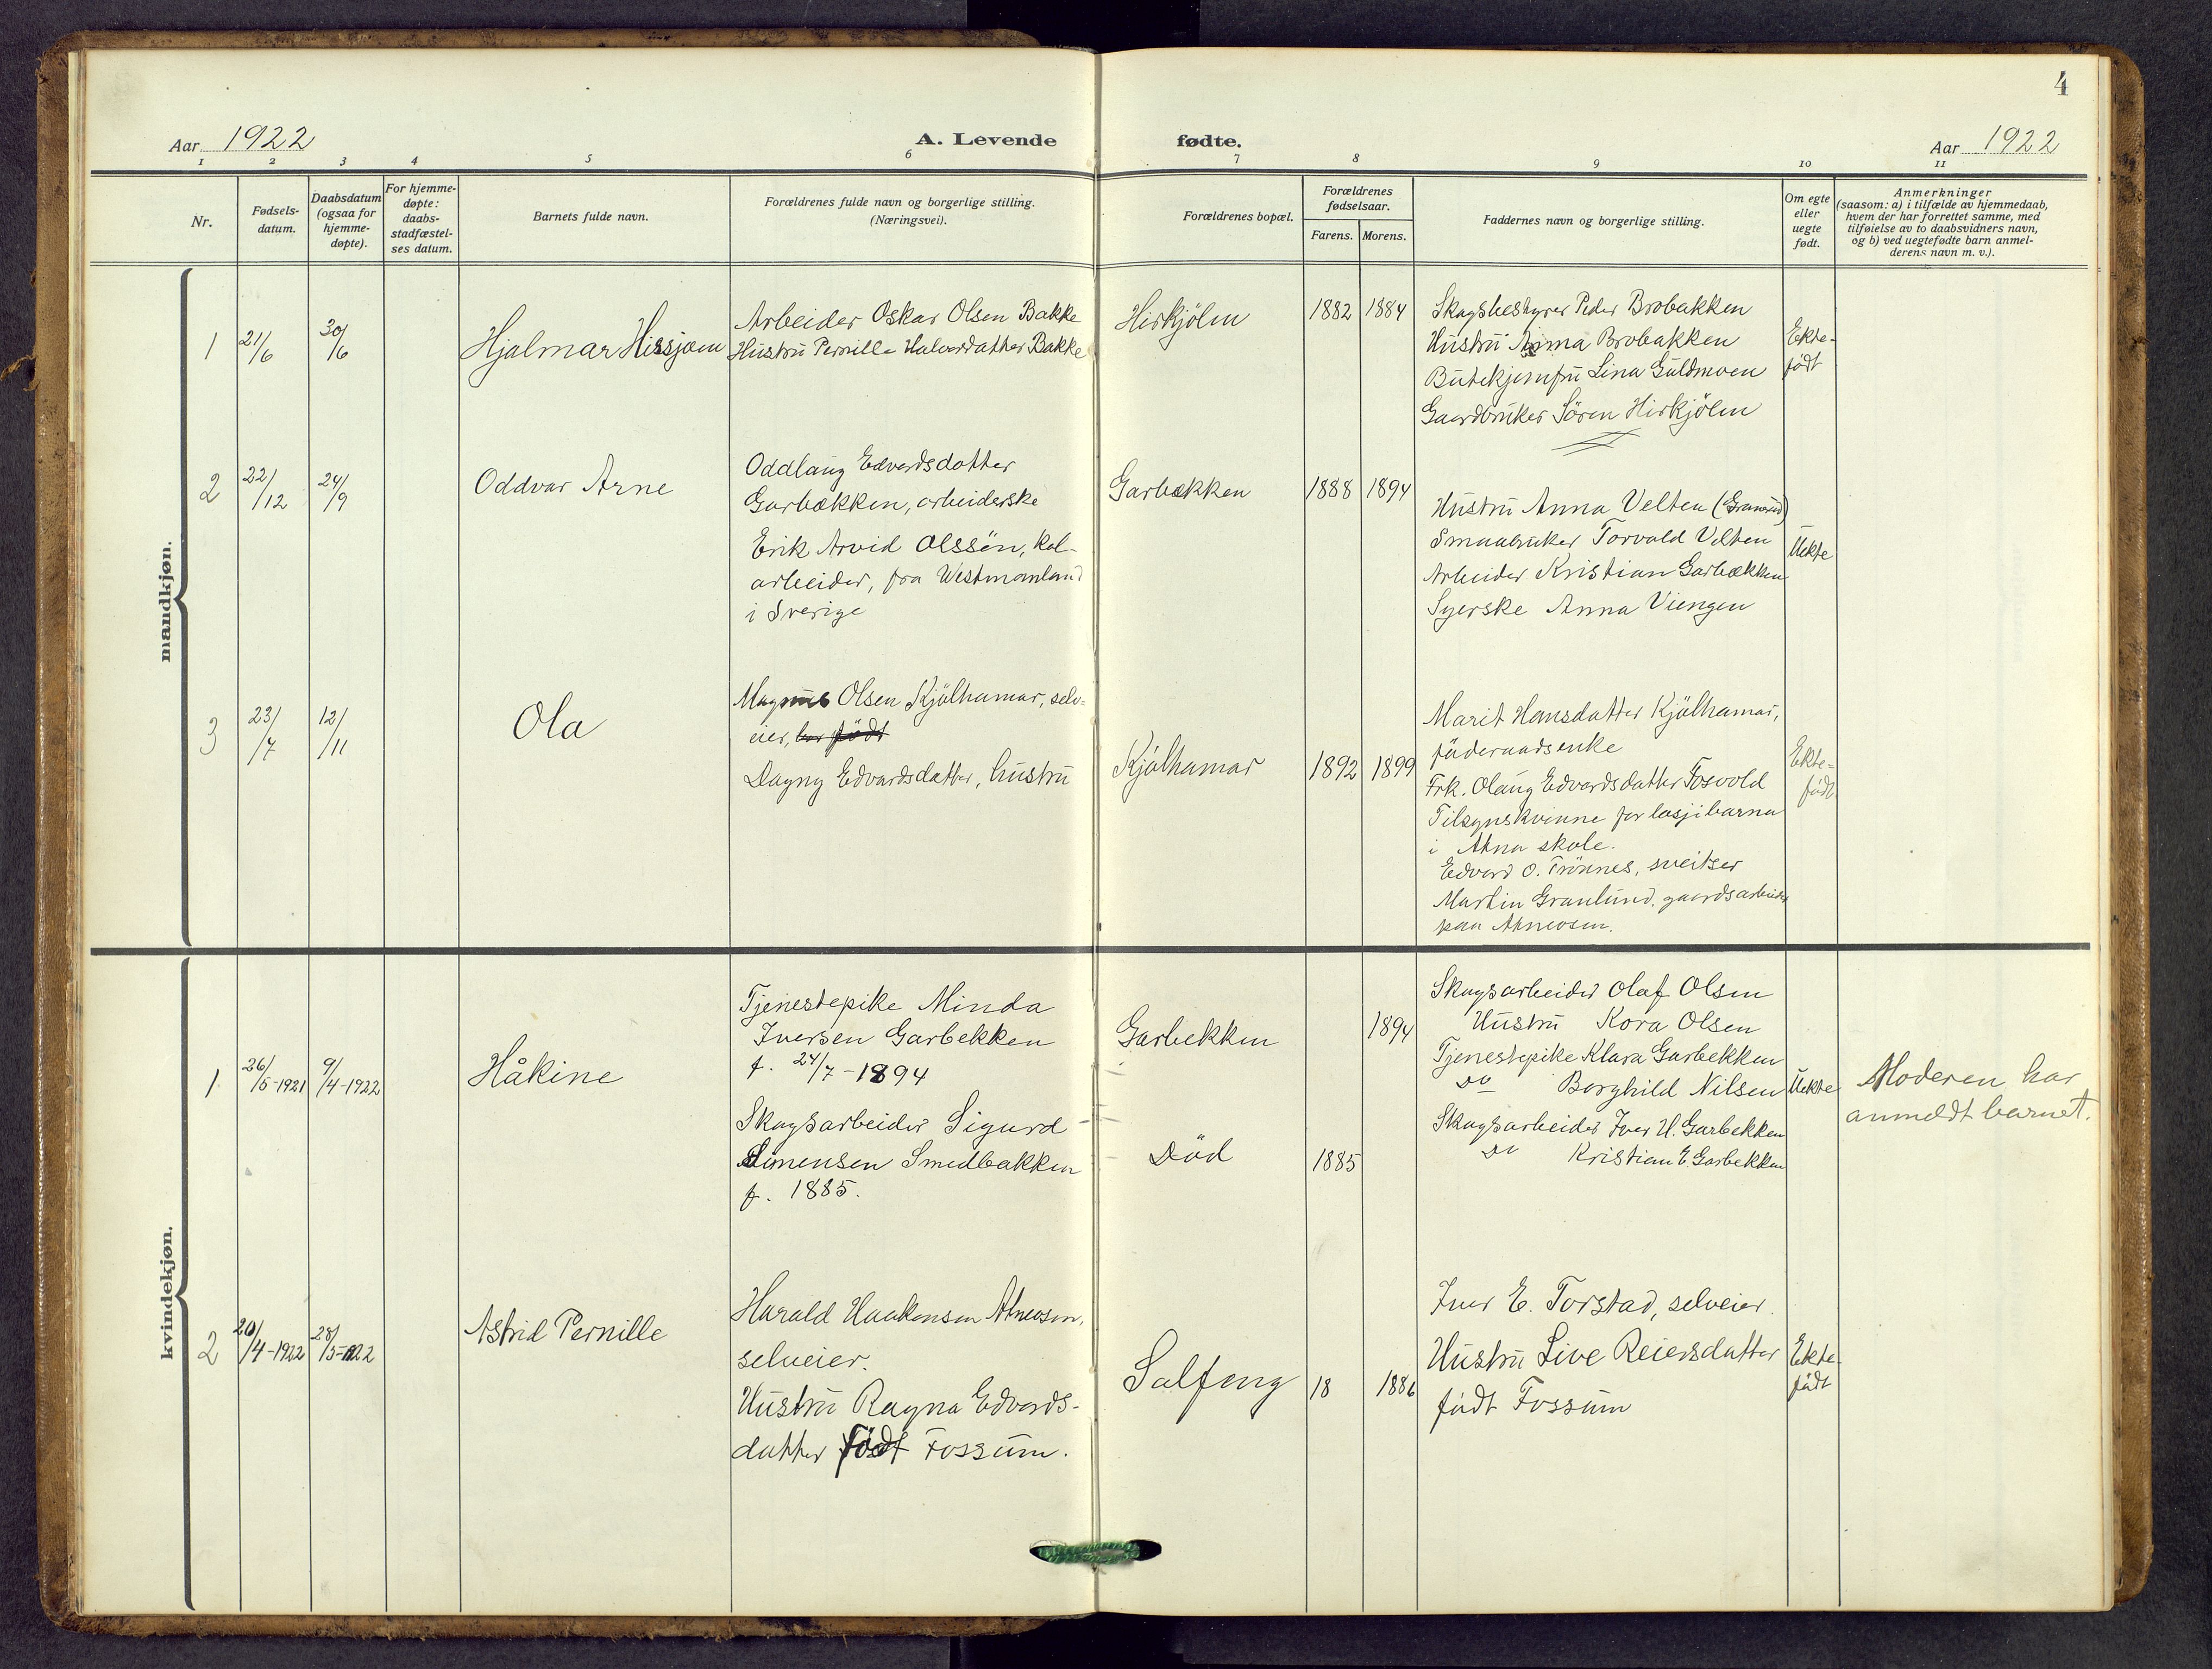 4
Aar 1922
A. Levende
fødte.
Aar 1922
1 2 3 4 5 6 7 8 9 10 11
Nr.
Fødsels-
datum.
Daabsdatum
(ogsaa for
hjemme-
døpte).
For hjemme-
døpte:
daabs-
stadfæstel-
ses datum.
Barnets fulde navn.
Forældrenes fulde navn og borgerlige stilling.
(Næringsvei).
Forældrenes bopæl.
Forældrenes
fødselsaar.
Farens. Morens.
Faddernes navn og borgerlige stilling.
Om egte
eller
uegte
født.
Anmerkninger
(saasom: a) i tilfælde av hjemmedaab,
hvem der har forrettet samme, med
tilføielse av to daabsvidners navn,
og b) ved uegtefødte barn anmel-
derens navn m. v.).
mandkjøn.
1
21/6
30/6
Hjalmar Hirsjøen
Arbeider Oskar Olsen Bakke
Hustru Pernille Halvordatter Bakke
Hirkjölen
1882 1884
Skogbestyrer Peder Brobakken
Hustru Anna Brobakken
Butikjomfru Lina Guldmoen
Gaardbruker Sören Hirkjölen
Ekte-
födt
2
22/12
24/9
Oddvar Arne
Oddlaug Edvardsdatter
Garbækken, arbeiderske
Erik Arvid Olssön, kol-
arbeider, fra Westmanland
i Sverige
Garbækken
1888 1894
Hustru Anna Velten (Granrud)
Smaabruker Torvald Velten
Arbeider Kristian Garbækken
Syerske Anna Viengen
Uekte
3
23/7
12/11
Ola
Magnus Olsen Kjölhamar, selv-
eier, har födt
Dagny Edvardsdatter, hustru
Kjölhamar
1892 1899
Marit Hansdatter Kjölhamar,
föderaadsenke
Frk. Olaug Edvardsdatter Fosvold
Tilsynskvinne for losjibarna
i Atna skole.
Edvard O. Trönnes, sveitser
Martin Granlund, gaardsarbeider
paa Atneosen.
Ekte-
födt
kvindekjøn.
1
26/5-1921
9/4-1922
Håkine
Tjenestepike Minda
Iversen Garbekken
f. 24/7-1894
Skogsarbeider Sigurd
Simensen Smedbakken
f. 1885.
Garbekken
Död
1894
1885
Skogsarbeider Olaf Olsen
Hustru Kora Olsen
Tjenestepike Klara Garbekken
do Borghild Nilsen
Skogsarbeider Iver H. Garbekken
do Kristian E. Garbekken
Uekte
Moderen har
anmeldt barnet.
2
20/4-1922
28/5-1922
Astrid Pernille
Harald Haakensen Atneosen,
selveier.
Hustru Ragna Edvards-
datter födt Fossum.
Solfeng
18 1886
Iver E. Torstad, selveier.
Hustru Live Reiersdatter
födt Fossum
Ekte-
födt